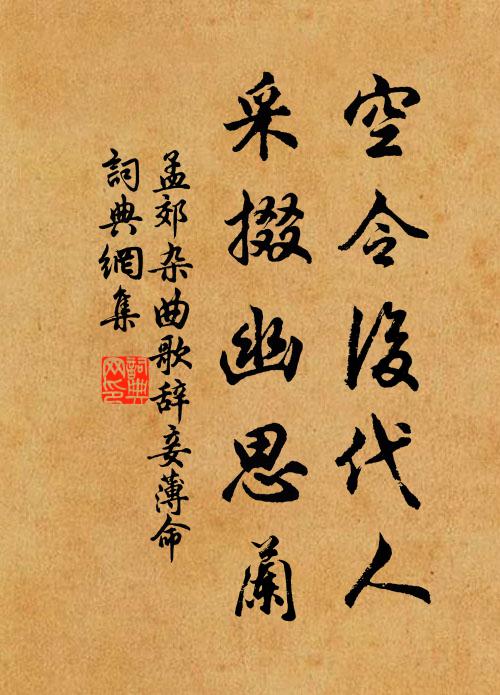 空令後代人
采掇幽思蘭
孟郊杂曲歌辞妾薄命
詞典網集
詞典
网印